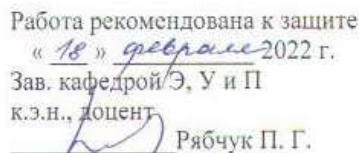 Работа рекомендована к защите
« 18 » февраля 2022 г.
Зав. кафедрой Э, У и П
к.э.н., доцент
Рябчук П. Г.